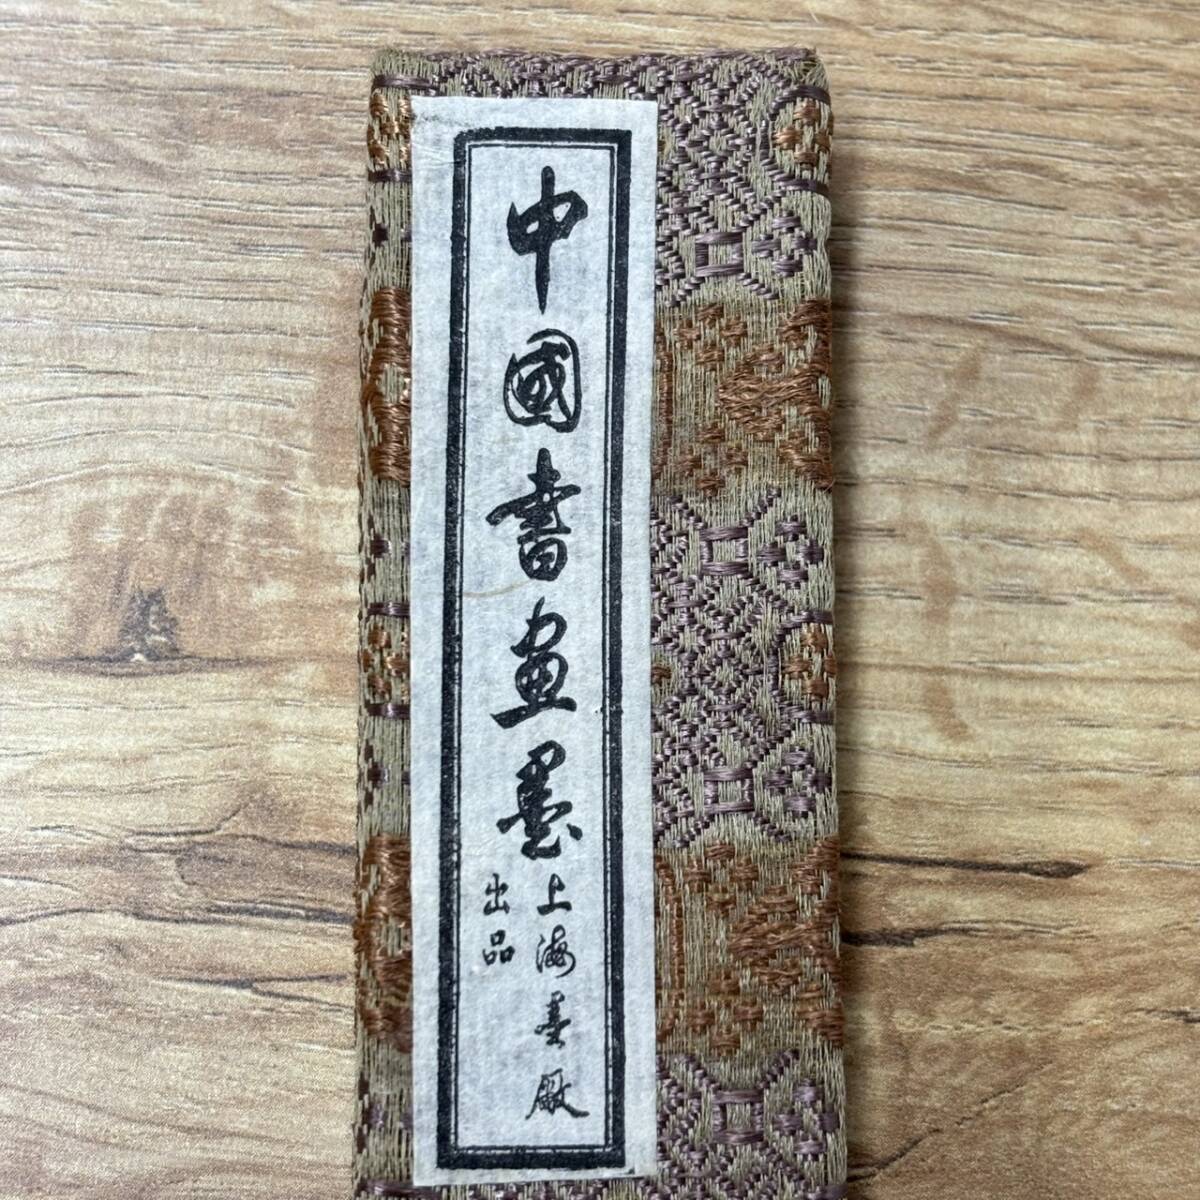 中國書畫墨
上海墨厰
出品